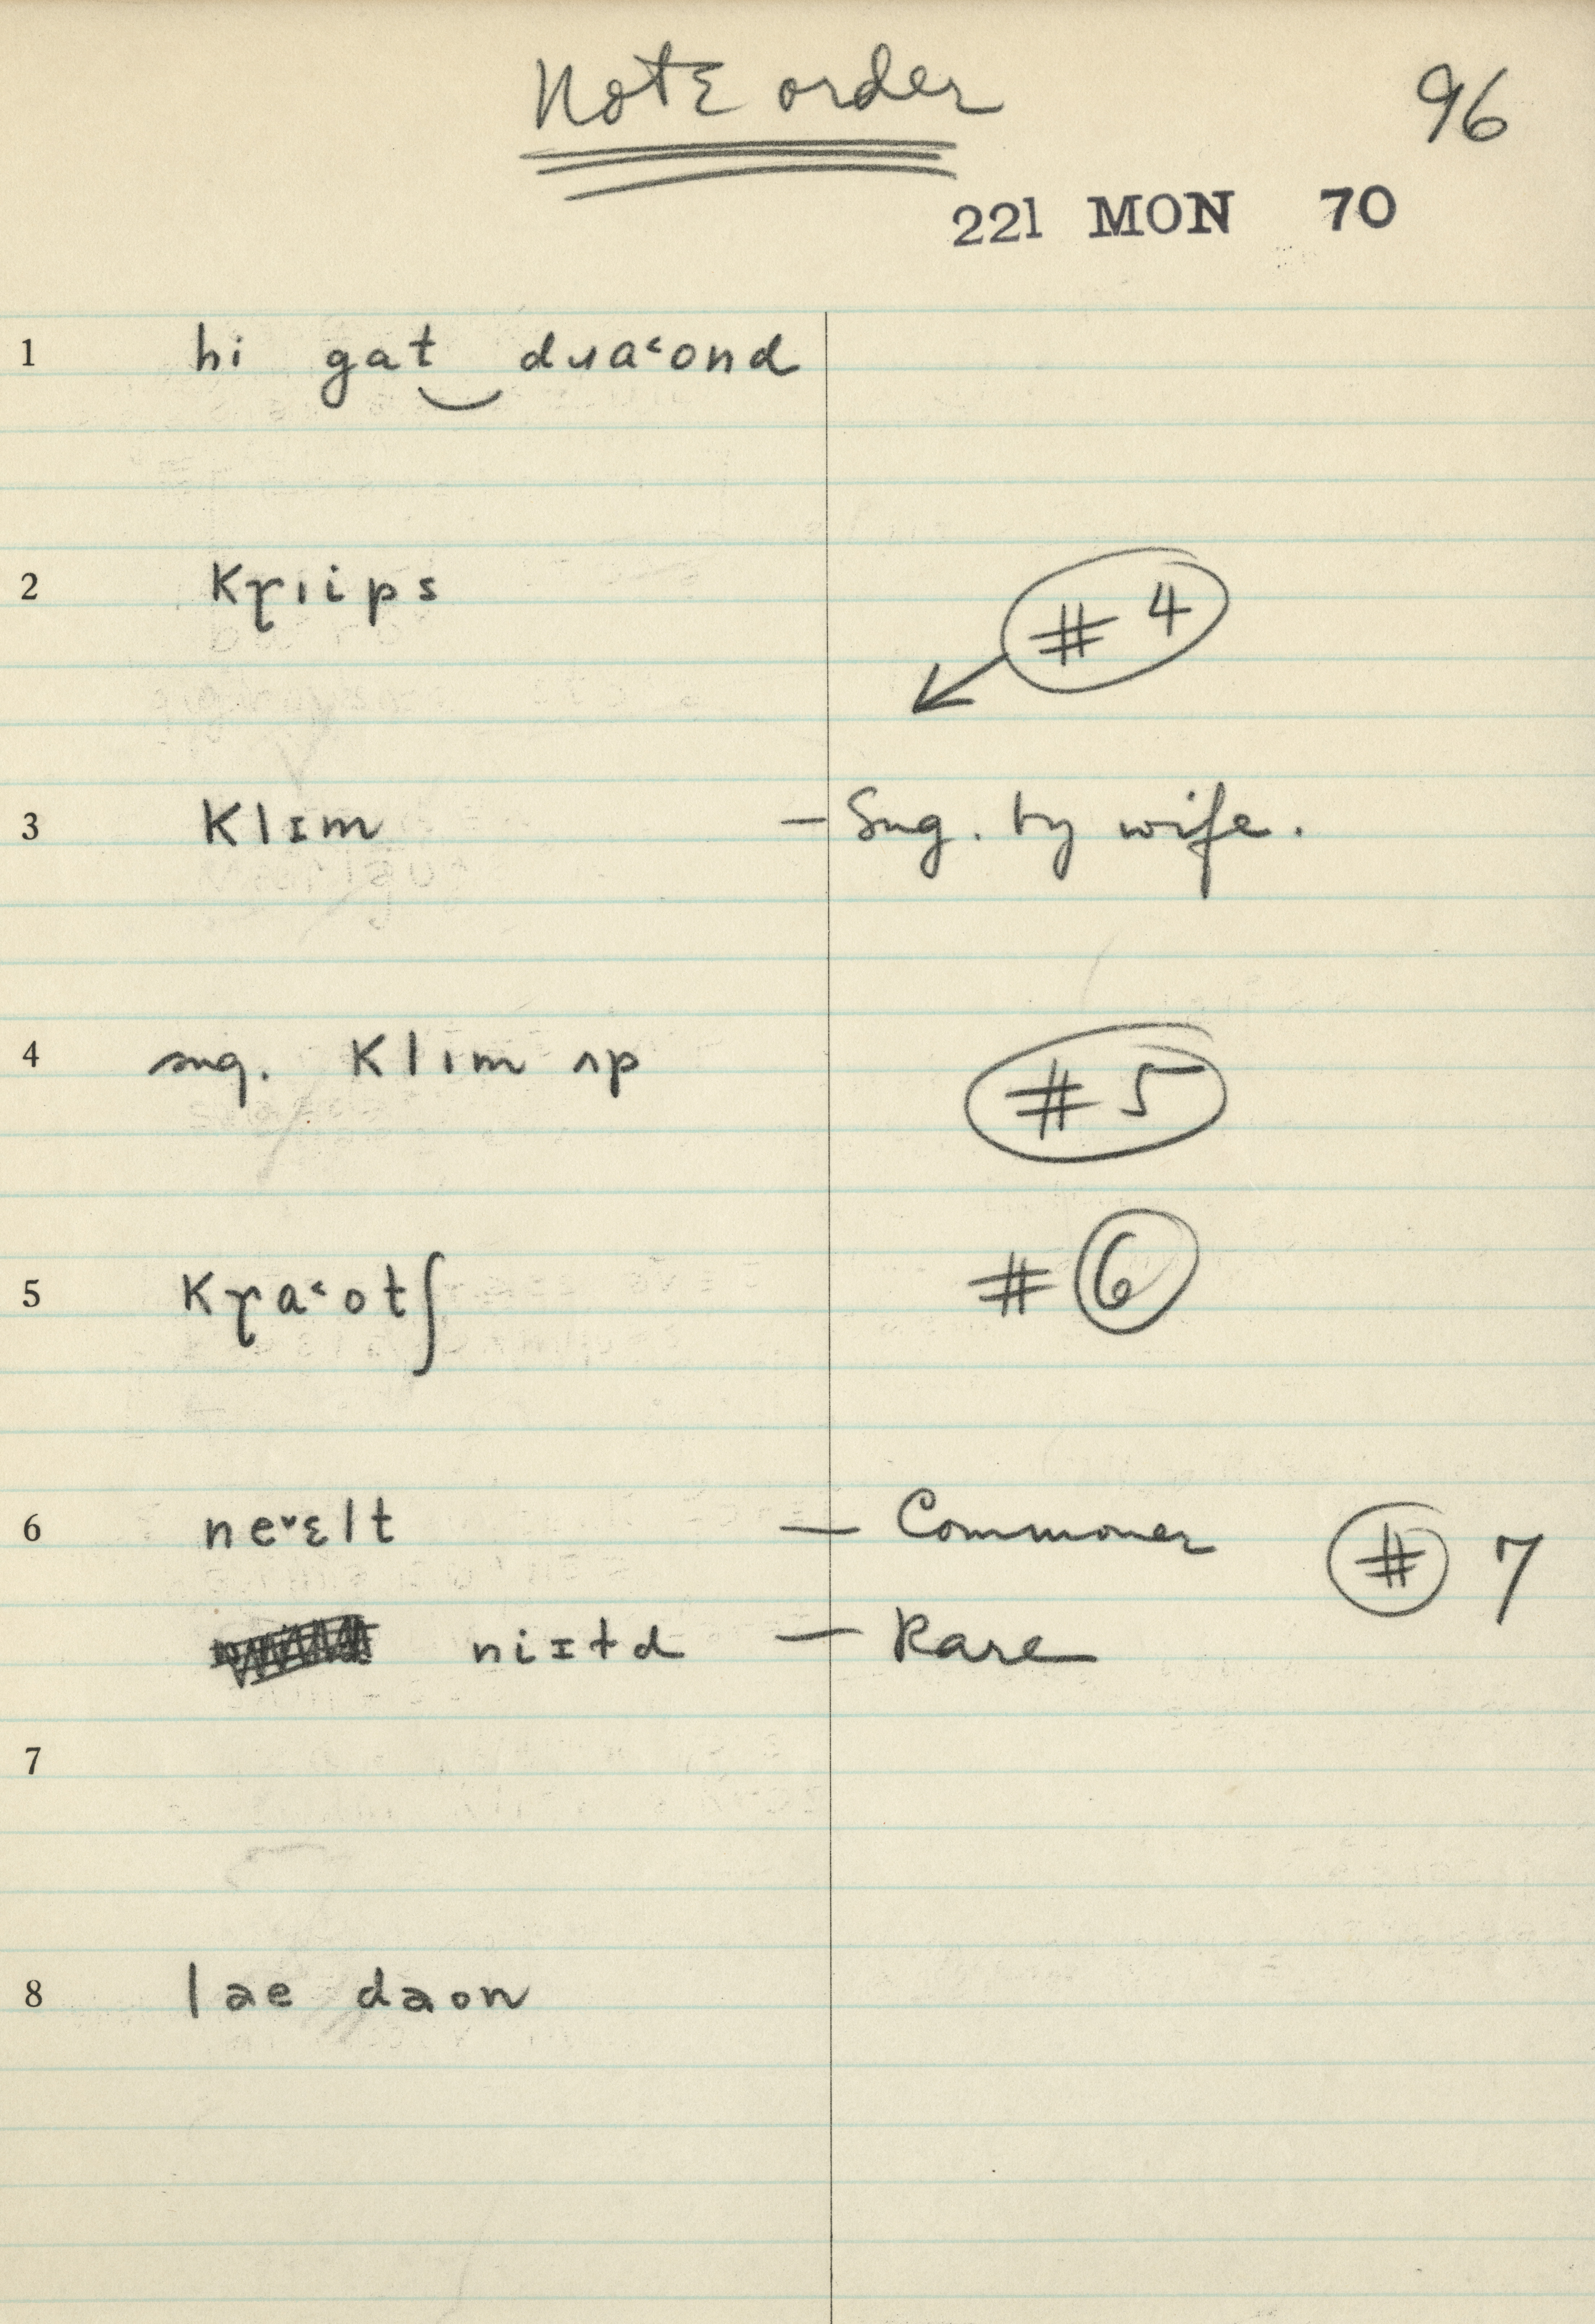 Notɛ order
96
221 MON 70
1 hi gat‿dɹa˂ond
2 kɼıips
# 4
3 klɪm — Sug. by wife.
4 sug. klım ʌp
# 5
5 kɼa˂otʃ
# 6
6 ne˅ɛlt — Commoner # 7
niɪtd — Rare
7
8 lae daon